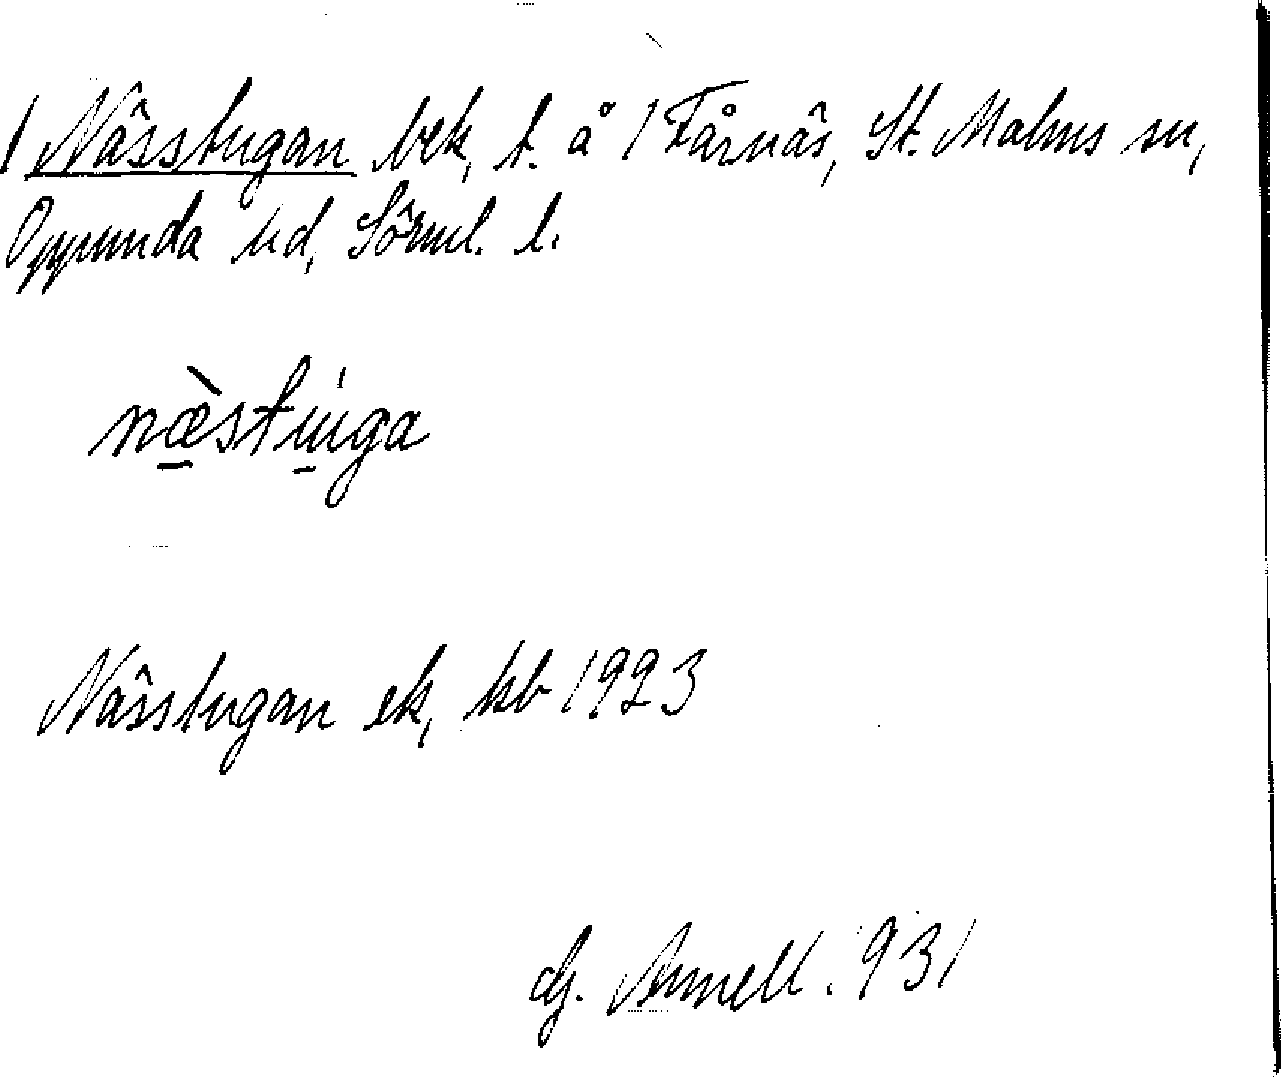 / Nässtugan bek, t. å / Fårnäs, St. Malms sn,
Oppunda hd, Sörml. l.
næ̀stu̱ga
Nässtugan ek, kb 1923
Gj. Annell. 931